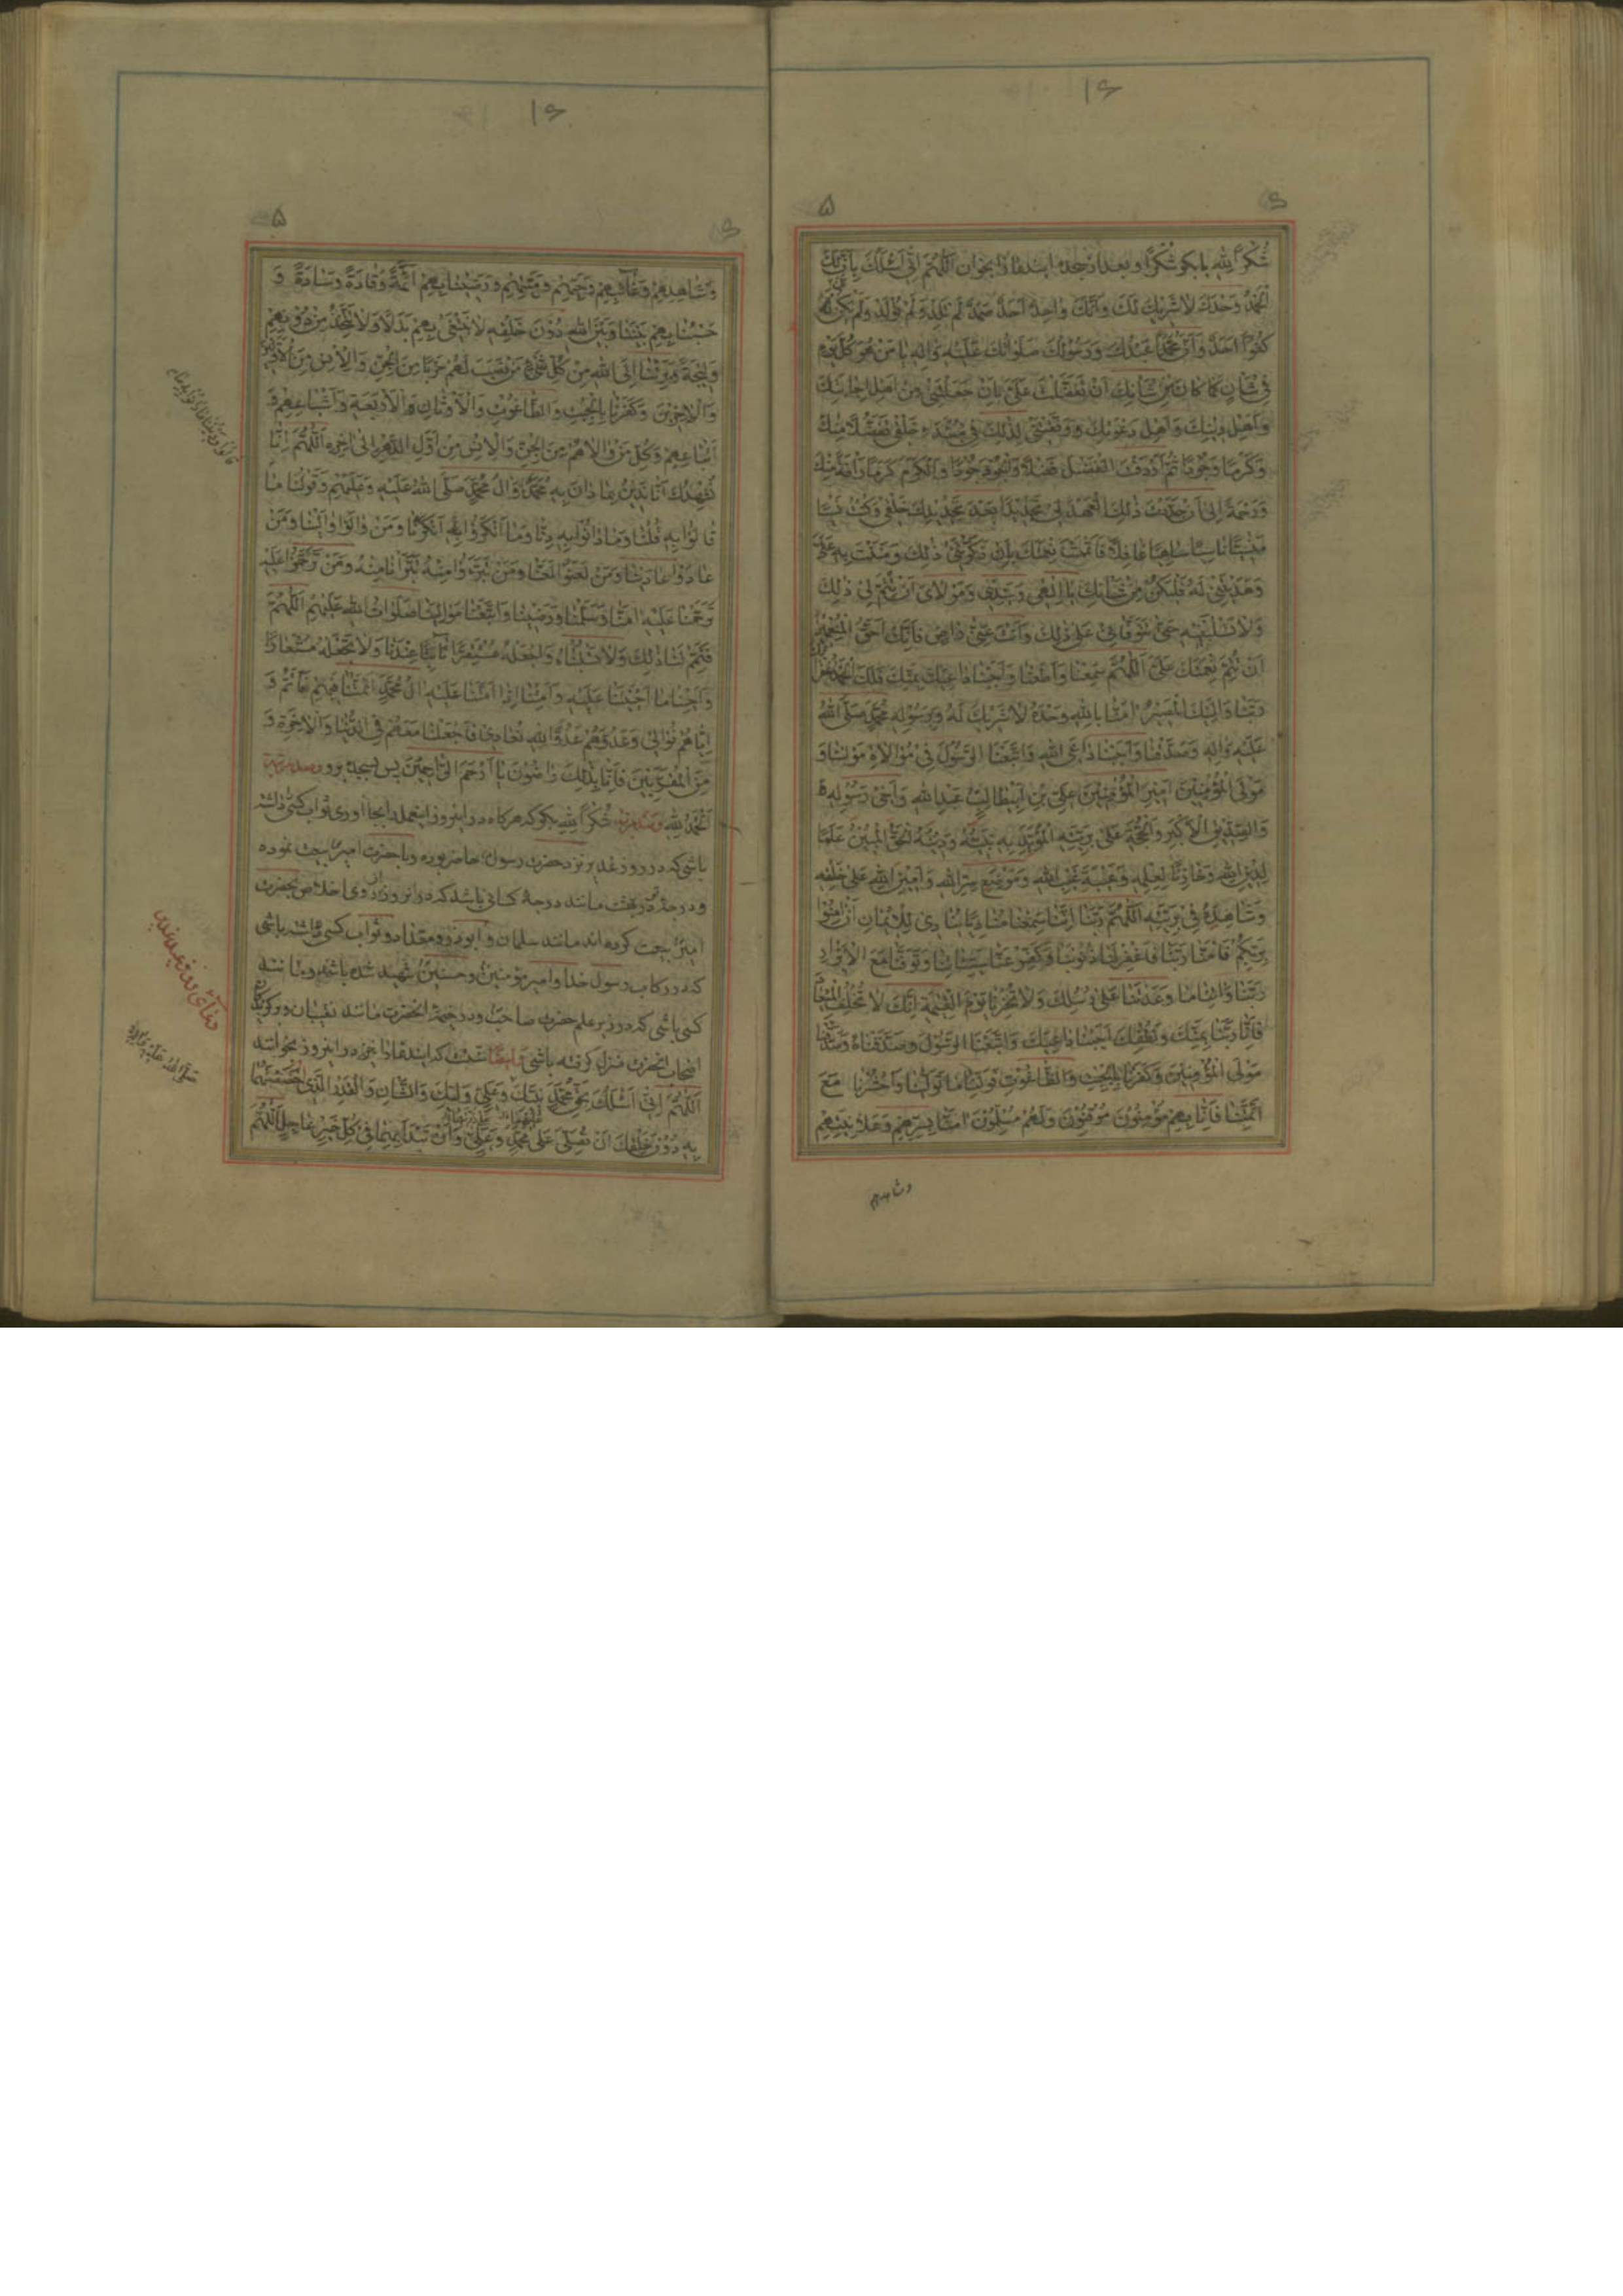 ۱۶
۵
۶
شُكْرًا لِلّٰهِ يا بكو شُكْرًا و بعد از سجده اين دعا را بخوان اَللّٰهُمَّ اِنّى اَسْئَلُكَ بِاَنَّ لَكَ
الْحَمْدَ وَحْدَكَ لا شَرِيكَ لَكَ وَاَنَّكَ واحِدٌ اَحَدٌ صَمَدٌ لَمْ تَلِدْ وَلَمْ تُولَدْ وَلَمْ يَكُنْ لَكَ
كُفُوًا اَحَدٌ وَاَنَّ مُحَمَّدًا عَبْدُكَ وَرَسُولُكَ صَلَواتُكَ عَلَيْهِ وَالِهِ يا مَنْ هُوَ كُلَّ يَوْمٍ
فى شَاْنٍ كَما كانَ مِنْ شَاْنِكَ اَنْ تَفَضَّلْتَ عَلَىَّ بِاَنْ جَعَلْتَنى مِنْ اَهْلِ اِجابَتِكَ
وَاَهْلِ دِينِكَ وَاَهْلِ دَعْوَتِكَ وَوَفَّقْتَنى لِذٰلِكَ فى مُبْتَدَءِ خَلْقى تَفَضُّلًا مِنْكَ
وَكَرَمًا وَجُودًا ثُمَّ اَرْدَفْتَ الْفَضْلَ فَضْلًا وَالْجُودَ جُودًا وَالْكَرَمَ كَرَمًا رَاْفَةً مِنْكَ
وَرَحْمَةً اِلى اَنْ جَدَّدْتَ ذٰلِكَ الْعَهْدَ لى تَجْدِيدًا بَعْدَ تَجْدِيدِكَ خَلْقى وَكُنْتُ نَسْيًا
مَنْسِيًّا ناسِيًا ساهِيًا غافِلًا فَاَتْمَمْتَ نِعْمَتَكَ بِاَنْ ذَكَّرْتَنى ذٰلِكَ وَمَنَنْتَ بِهِ عَلَىَّ
وَهَدَيْتَنى لَهُ فَلْيَكُنْ مِنْ شَاْنِكَ يا اِلٰهى وَسَيِّدى وَمَوْلاىَ اَنْ تُتِمَّ لى ذٰلِكَ
وَلا تَسْلُبَنِيهِ حَتّى تَتَوَفّانى عَلى ذٰلِكَ وَاَنْتَ عَنّى راضٍ فَاِنَّكَ اَحَقُّ الْمُنْعِمِينَ
اَنْ تُتِمَّ نِعْمَتَكَ عَلَىَّ اَللّٰهُمَّ سَمِعْنا وَاَطَعْنا وَاَجَبْنا داعِيَكَ بِمَنِّكَ فَلَكَ الْحَمْدُ غُفْرانَكَ
رَبَّنا وَاِلَيْكَ الْمَصِيرُ امَنّا بِاللّٰهِ وَحْدَهُ لا شَرِيكَ لَهُ وَبِرَسُولِهِ مُحَمَّدٍ صَلَّى اللّٰهُ
عَلَيْهِ وَالِهِ وَصَدَّقْنا وَاَجَبْنا داعِىَ اللّٰهِ وَاتَّبَعْنَا الرَّسُولَ فى مُوالاةِ مَوْلانا وَ
مَوْلَى الْمُؤْمِنِينَ اَمِيرِ الْمُؤْمِنِينَ عَلِىِّ بْنِ اَبِيطالِبٍ عَبْدِ اللّٰهِ وَاَخى رَسُولِهِ
وَالصِّدِّيقِ الْاَكْبَرِ وَالْحُجَّةِ عَلى بَرِيَّتِهِ الْمُؤَيِّدِ بِهِ نَبِيَّهُ وَدِينَهُ الْحَقَّ الْمُبِينَ عَلَمًا
لِدِينِ اللّٰهِ وَخازِنًا لِعِلْمِهِ وَعَيْبَةَ غَيْبِ اللّٰهِ وَمَوْضِعَ سِرِّ اللّٰهِ وَاَمِينَ اللّٰهِ عَلى خَلْقِهِ
وَشاهِدَهُ فى بَرِيَّتِهِ اَللّٰهُمَّ رَبَّنا اِنَّنا سَمِعْنا مُنادِيًا يُنادى لِلْايمانِ اَنْ امِنُوا
بِرَبِّكُمْ فَامَنّا رَبَّنا فَاغْفِرْ لَنا ذُنُوبَنا وَكَفِّرْ عَنّا سَيِّئاتِنا وَتَوَفَّنا مَعَ الْاَبْرارِ
رَبَّنا وَاتِنا ما وَعَدْتَنا عَلى رُسُلِكَ وَلا تُخْزِنا يَوْمَ الْقِيٰمَةِ اِنَّكَ لا تُخْلِفُ الْمِيعادَ
فَاِنّا رَبَّنا بِمَنِّكَ وَلُطْفِكَ اَجَبْنا داعِيَكَ وَاتَّبَعْنَا الرَّسُولَ وَصَدَّقْناهُ وَصَدَّقْنا
مَوْلَى الْمُؤْمِنِينَ وَكَفَرْنا بِالْجِبْتِ وَالطّاغُوتِ فَوَلِّنا ما تَوَلَّيْنا وَاحْشُرْنا مَعَ
اَئِمَّتِنا فَاِنّا بِهِمْ مُؤْمِنُونَ مُوقِنُونَ وَلَهُمْ مُسَلِّمُونَ امَنّا بِسِرِّهِمْ وَعَلانِيَتِهِمْ
وشاهدهم
۱۶
۵
۶
وَشاهِدِهِمْ وَغائِبِهِمْ وَحَيِّهِمْ وَمَيِّتِهِمْ وَرَضِينا بِهِمْ اَئِمَّةً وَقادَةً وَسادَةً وَ
حَسْبُنا بِهِمْ بَيْنَنا وَبَيْنَ اللّٰهِ دُونَ خَلْقِهِ لا نَبْتَغى بِهِمْ بَدَلًا وَلا نَتَّخِذُ مِنْ دُونِهِمْ
وَلِيجَةً وَبَرِئْنا اِلَى اللّٰهِ مِنْ كُلِّ مَنْ نَصَبَ لَهُمْ حَرْبًا مِنَ الْجِنِّ وَالْاِنْسِ مِنَ الْاَوَّلِينَ
وَالْاخِرِينَ وَكَفَرْنا بِالْجِبْتِ وَالطّاغُوتِ وَالْاَوْثانِ الْاَرْبَعَةِ وَاَشْياعِهِمْ وَ
اَتْباعِهِمْ وَكُلِّ مَنْ والاهُمْ مِنَ الْجِنِّ وَالْاِنْسِ مِنْ اَوَّلِ الدَّهْرِ اِلى اخِرِهِ اَللّٰهُمَّ اِنّا
نُشْهِدُكَ اَنّا نَدِينُ بِما دانَ بِهِ مُحَمَّدٌ وَالُ مُحَمَّدٍ صَلَّى اللّٰهُ عَلَيْهِ وَعَلَيْهِمْ وَقَوْلُنا ما
قالُوا بِهِ قُلْنا وَما دانُوا بِهِ دِنّا وَما اَنْكَرُوا اَنْكَرْنا وَمَنْ والَوْا والَيْنا وَمَنْ
عادَوْا عادَيْنا وَمَنْ لَعَنُوا لَعَنّا وَمَنْ تَبَرَّءُوا مِنْهُ تَبَرَّاْنا مِنْهُ وَمَنْ تَرَحَّمُوا عَلَيْهِ
تَرَحَّمْنا عَلَيْهِ امَنّا وَسَلَّمْنا وَرَضِينا وَاتَّبَعْنا مَوالِيَنا صَلَواتُ اللّٰهِ عَلَيْهِمْ اَللّٰهُمَّ
فَتَمِّمْ لَنا ذٰلِكَ وَلا تَسْلُبْناهُ وَاجْعَلْهُ مُسْتَقِرًّا ثابِتًا عِنْدَنا وَلا تَجْعَلْهُ مُسْتَعارًا
وَاَحْيِنا ما اَحْيَيْتَنا عَلَيْهِ وَاَمِتْنا اِذا اَمَتَّنا عَلَيْهِ الُ مُحَمَّدٍ اَئِمَّتُنا فَبِهِمْ نَاْتَمُّ وَ
اِيّاهُمْ نُوالى وَعَدُوَّهُمْ عَدُوَّ اللّٰهِ نُعادى فَاجْعَلْنا مَعَهُمْ فِى الدُّنْيا وَالْاخِرَةِ وَ
مِنَ الْمُقَرَّبِينَ فَاِنّا بِذٰلِكَ راضُونَ يا اَرْحَمَ الرّاحِمِينَ پس بسجده برو وصد مرتبه
اَلْحَمْدُ لِلّٰهِ وصد مرتبه شُكْرًا لِلّٰهِ بكو كه هركاه در اين روز اين عمل را بجا اورى ثواب كسى داشته
باشى كه در روز غدير نزد حضرت رسول حاضر بوده و با حضرت امير بيعت نموده
و درجه تو در بهشت مانند درجهٔ كسانى باشد كه در انروز از روى اخلاص بحضرت
امير بيعت كرده اند مانند سلمان و ابوذر و مقداد و ثواب كسى داشته باشى
كه در ركاب رسول خدا و امير مؤمنين و حسنين شهيد شده باشد و مانند
كسى باشى كه در زير علم حضرت صاحب و در خيمهٔ انحضرت مانند نقيبان و بزركان
اصحاب انحضرت منزل كرفته باشى وايضا سنت كه اين دعا را نيز در اين روز بخوانند
اَللّٰهُمَّ اِنّى اَسْئَلُكَ بِحَقِّ مُحَمَّدٍ نَبِيِّكَ وَعَلِىٍّ وَلِيِّكَ وَالشَّاْنِ وَالْقَدْرِ الَّذى خَصَصْتَهُما
بِهِ دُونَ خَلْقِكَ اَنْ تُصَلِّىَ عَلى مُحَمَّدٍ وَعَلِىٍّ وَاَنْ تَبْدَاَ بِهِما فى كُلِّ خَيْرٍ عاجِلٍ اَللّٰهُمَّ
دعاى روز عيد غدير